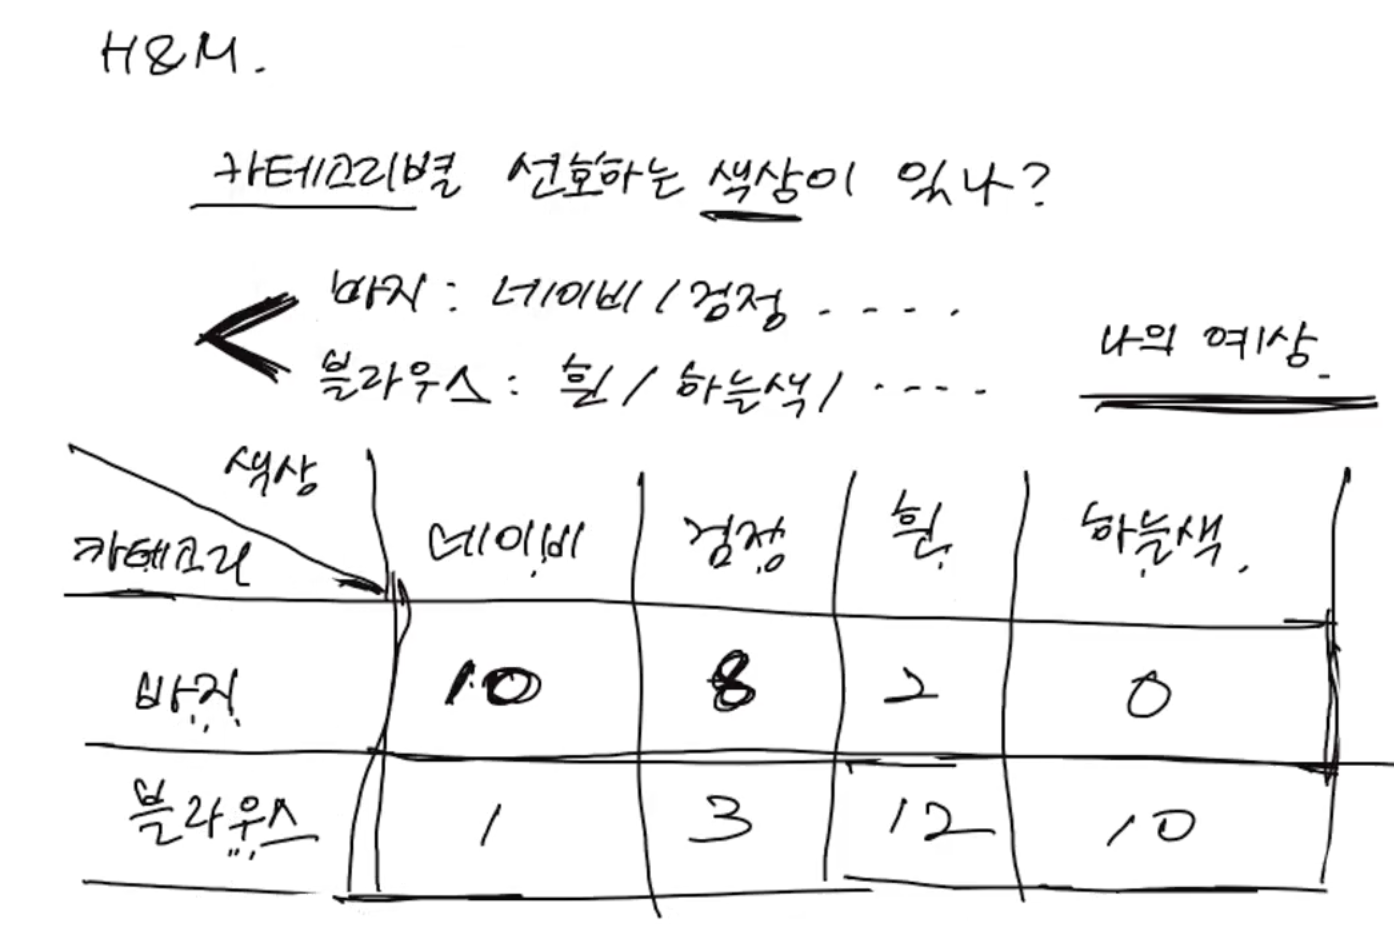 H&M.
카테고리별 선호하는 색상이 있나?
바지 : 네이비 / 검정 . . . .
블라우스 : 흰 / 하늘색 / . . . .
나의 예상.
색상
카테고리
네이비 검정 흰 하늘색.
바지 10 8 2 0
블라우스 1 3 12 10